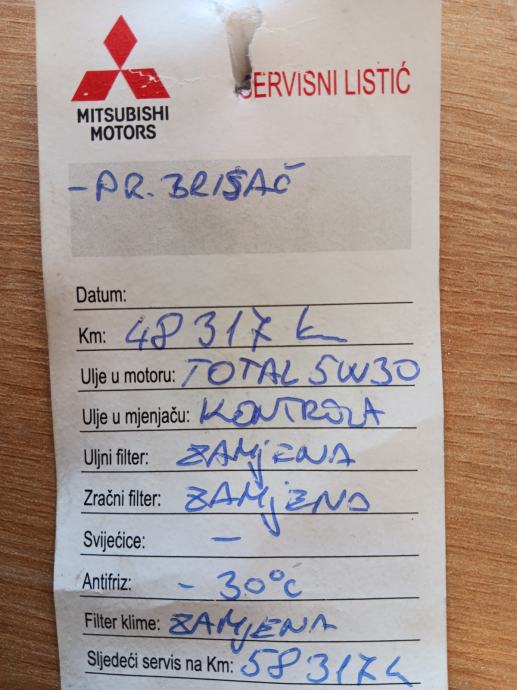 SERVISNI LISTIĆ
MITSUBISHI
MOTORS
-PR. BRISAČ
Datum:
Km: 48 317 k
Ulje u motoru: TOTAL 5W30
Ulje u mjenjaču: KONTROLA
Uljni filter: ZAMJENA
Zračni filter: ZAMJENA
Svijećice: -
Antifriz: -30°C
Filter klime: ZAMJENA
Sljedeći servis na Km: 58 317 k